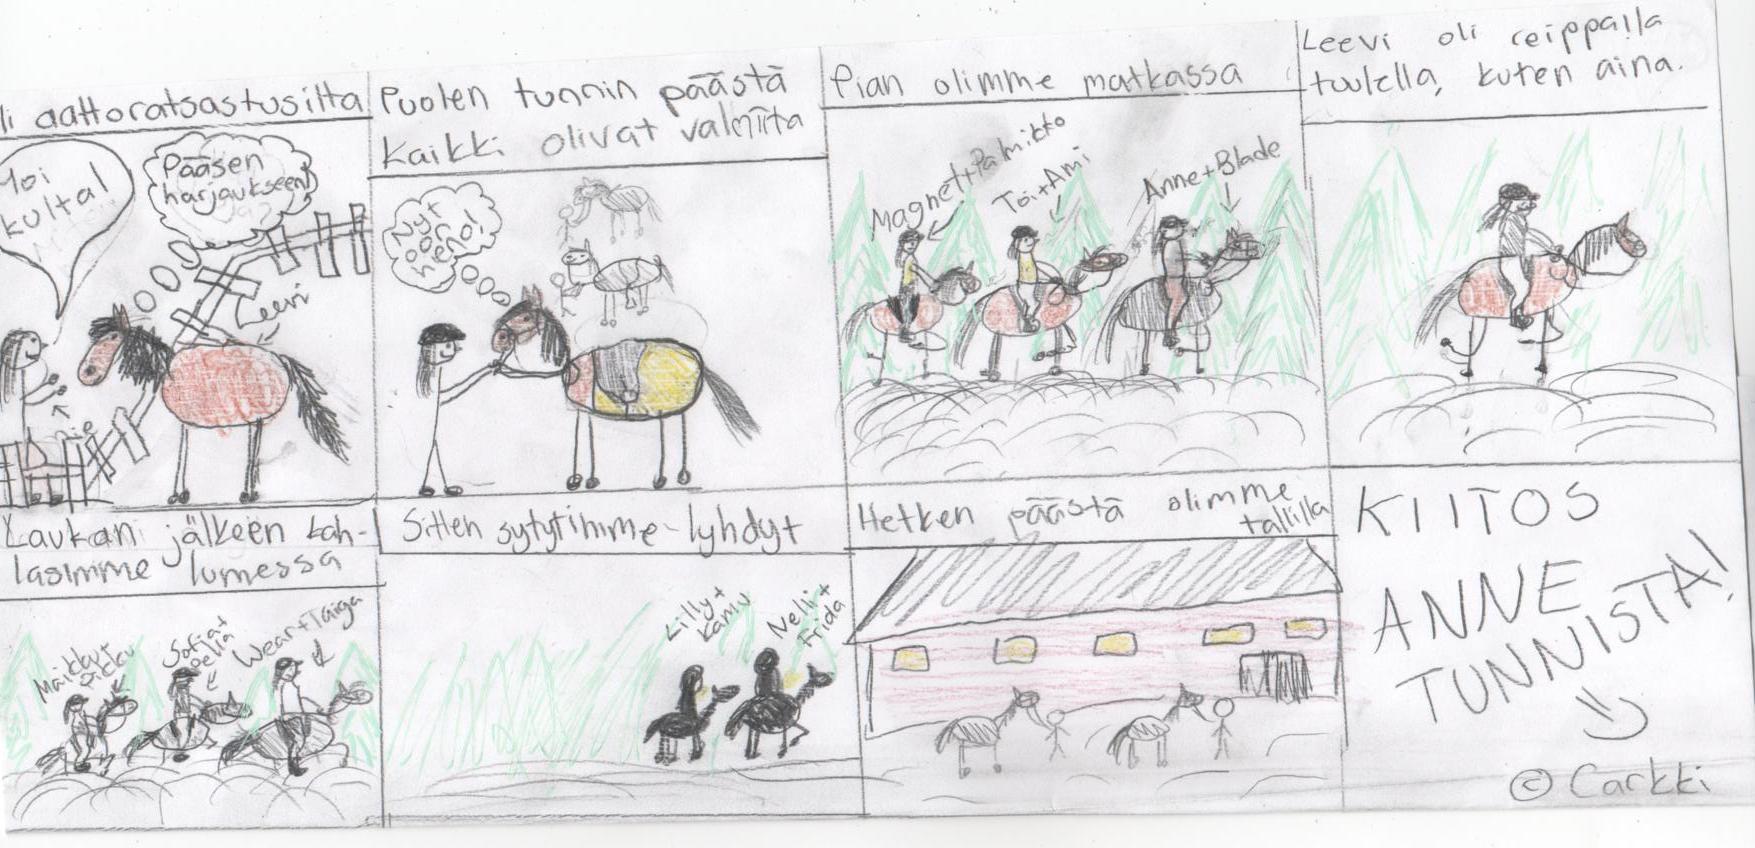 li aattoratsastusilta
Moi
kulta!
Pääsen
harjaukseen!
Leevi
Puolen tunnin päästä
kaikki olivat valmiita
Nyt
on
heno!
Pian olimme matkassa
Magnet+Palmikko
Toi+Ami
Anne+Blade
Leevi oli reippalla
tuulella, kuten aina.
Laukani jälkeen kah-
lasimme lumessa
Maikku+
Pikku
Sofia+
Delia
Wear+Taiga
Sitten sytytimme-lyhdyt
Lilly+
Kamu
Nelli+
Frida
Hetken päästä olimme
tallilla
KIITOS
ANNE
TUNNISTA!
© Carkki